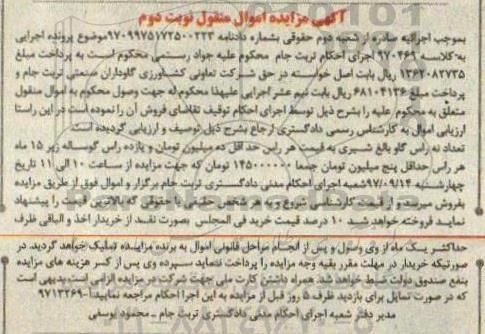 آگهی مزایده اموال منقول نوبت دوم
بموجب اجرائیه صادره از شعبه دوم حقوقی بشماره دادنامه ۹۷۰۹۹۷۵۱۷۲۵۰۰۲۲۳ موضوع پرونده اجرایی
به کلاسه ۹۷۰۴۶۹ اجرای احکام تربت جام محکوم علیه جواد رستمی محکوم است به پرداخت مبلغ
۱۳۶۲۰۸۲۷۳۵ ریال بابت اصل خواسته در حق شرکت تعاونی کشاورزی گاوداران صنعتی تربت جام و
پرداخت مبلغ ۶۸۱۰۴۱۳۶ ریال بابت نیم عشر اجرایی علیهذا محکوم له جهت وصول محکوم به اموال منقول
متعلق به محکوم علیه را بشرح ذیل توسط اجرای احکام توقیف تقاضای فروش آن را نموده است در این راستا
ارزیابی اموال به کارشناس رسمی دادگستری ارجاع بشرح ذیل توصیف و ارزیابی گردیده است
تعداد نه راس گاو بالغ شیری به قیمت هر راس حد اقل ده میلیون تومان و یازده راس گوساله زیر ۱۵ ماه
هر راس حداقل پنج میلیون تومان جمعا ۱۴۵۰۰۰۰۰۰ تومان که جهت مزایده از ساعت ۱۰ الی ۱۱ تاریخ
چهارشنبه ۹۷/۰۹/۱۴ شعبه اجرای احکام مدنی دادگستری تربت جام برگزار و اموال فوق از طریق مزایده
بفروش میرسد و از قیمت کارشناسی شروع و به هر شخص حقیقی یا حقوقی که بالاترین قیمت را پیشنهاد
نماید فروخته خواهد شد ۱۰ درصد قیمت خرید فی المجلس بصورت نقد از خریدار اخذ و الباقی ظرف
حداکثر یک ماه از وی وصول و پس از انجام مراحل قانونی اموال به برنده مزایده تملیک خواهد گردید. در
صورتیکه خریدار در مهلت مقرر بقیه وجه مزایده را پرداخت ننماید سپرده وی پس از کسر هزینه های مزایده
بنفع صندوق دولت ضبط خواهد شد. همراه داشتن کارت ملی جهت شرکت در مزایده الزامی است بدیهی است
که در صورت تمایل برای بازدید ظرف ۵ روز قبل از مزایده به این اجرا احکام مراجعه نمایید/-۹۷۱۳۲۶۹
مدیر دفتر شعبه اجرای احکام مدنی دادگستری تربت جام ـ محمود یوسفی